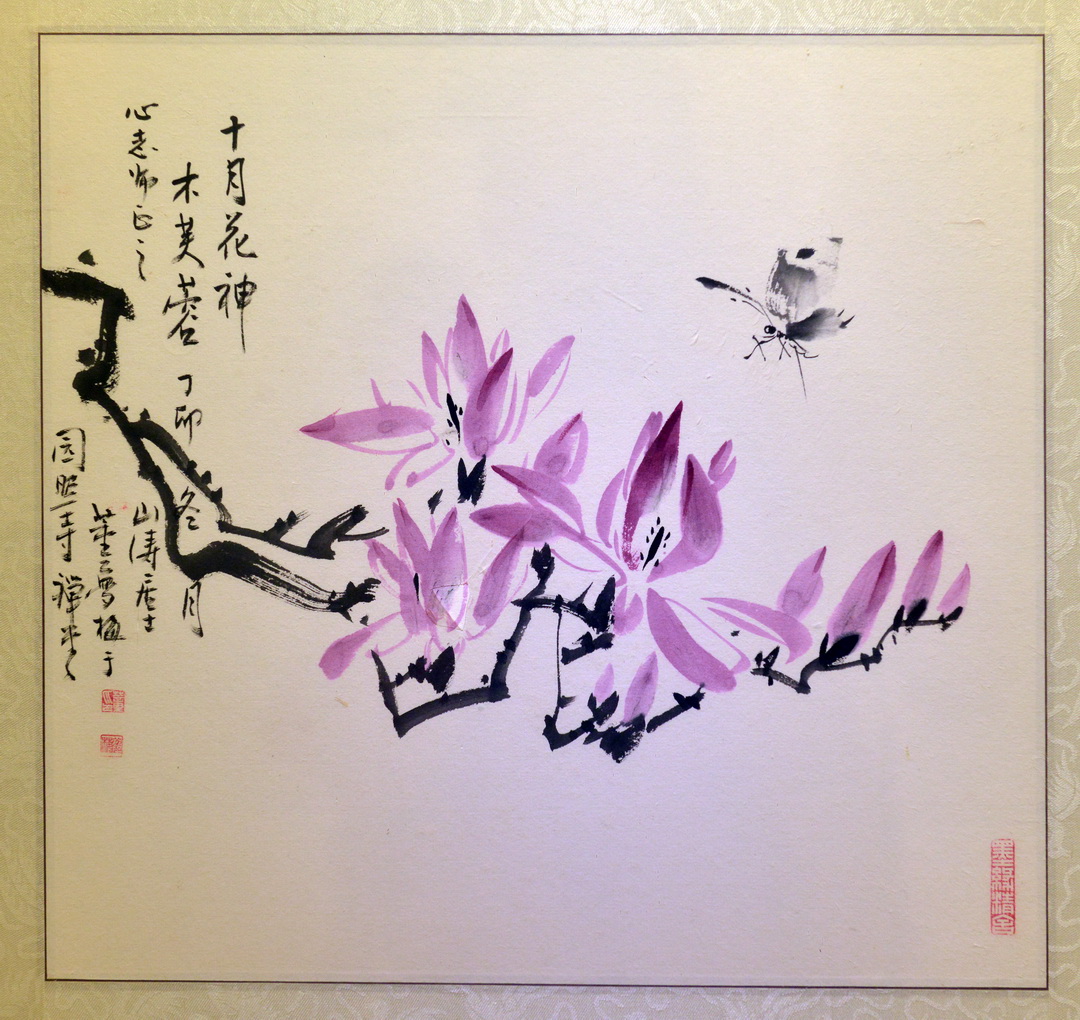 十月花神
木芙蓉 丁卯冬月
心志师正之
山涛居士
董雪梅于
园照寺禅
精舍